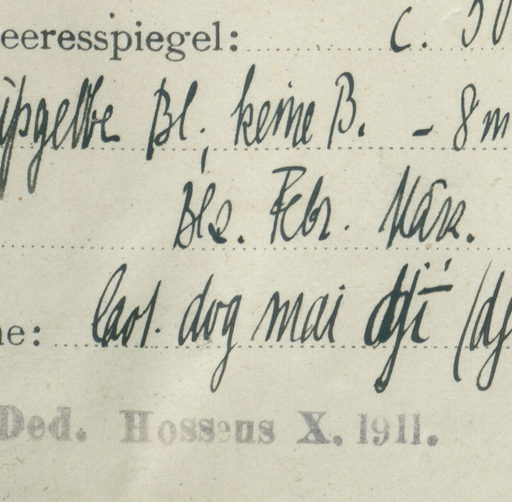 eeresspiegel: c. 50
ißgelbe Bl., keine B. - 8 m
Blz. Febr. März.
ne: Carl. dog mai
Ded. Hosseus X. 1911.